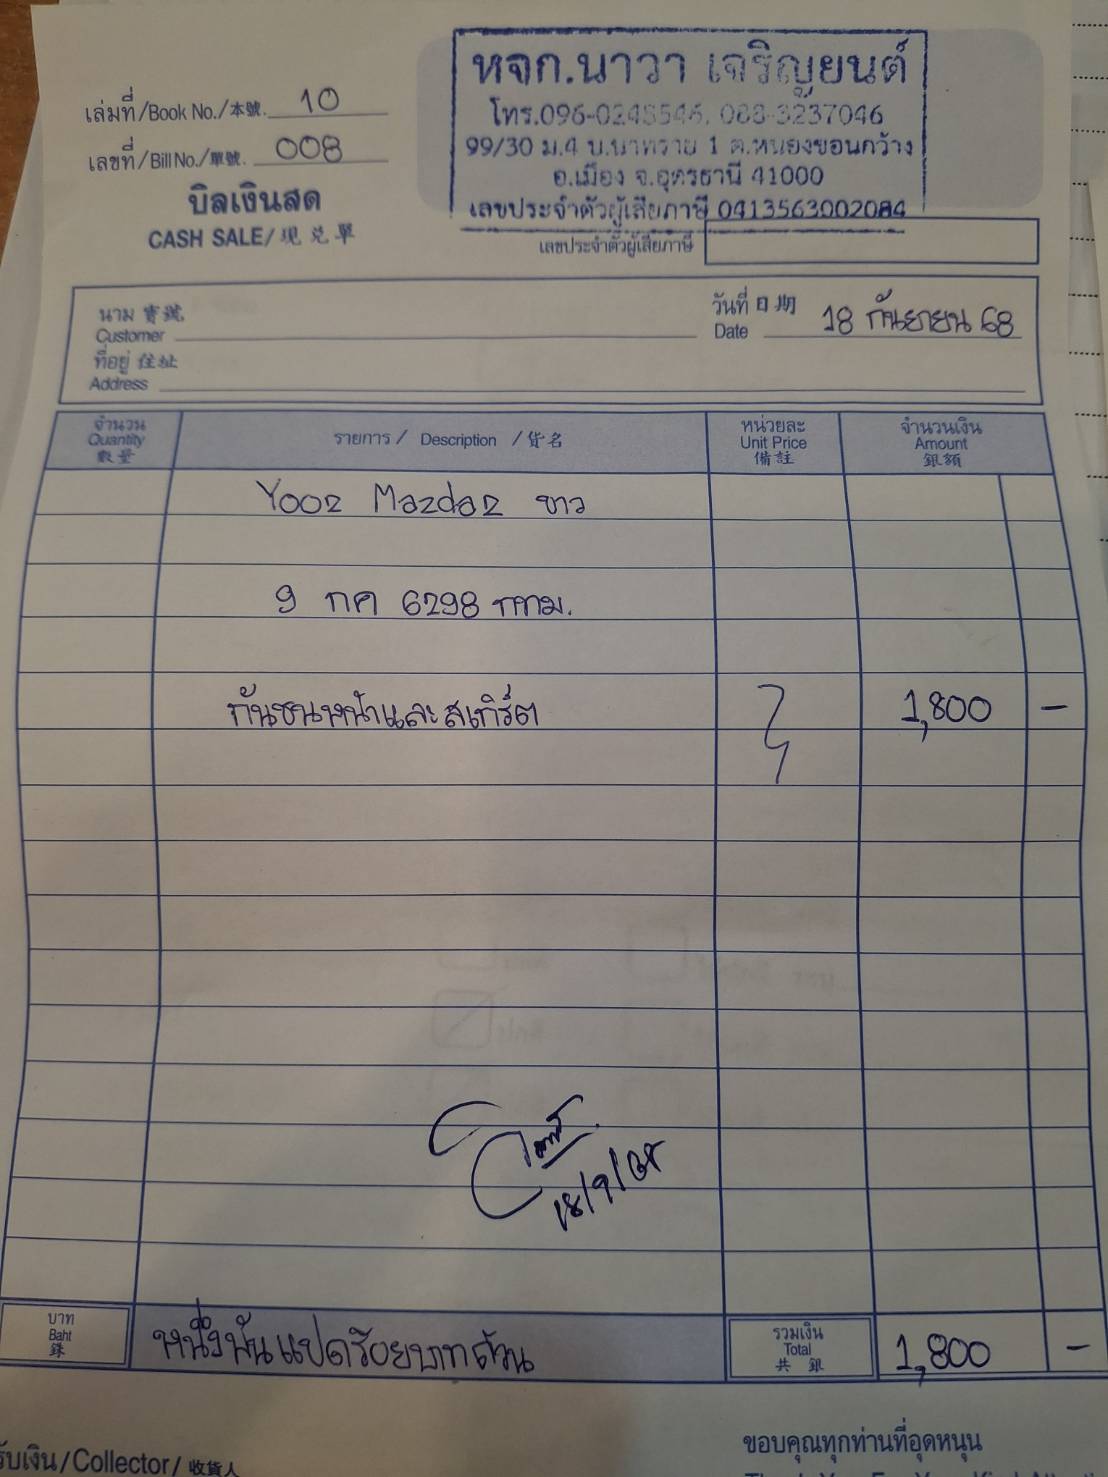 หจก.นาวา เจริญยนต์
โทร.096-0245546, 088-3237046
99/30 ม.4 บ.นาทราย 1 ต.หนองขอนกว้าง
อ.เมือง จ.อุดรธานี 41000
เลขประจำตัวผู้เสียภาษี 0413563002084
เล่มที่/Book No./本號. 10
เลขที่/Bill No./單號. 008
บิลเงินสด
CASH SALE/現兌單
เลขประจำตัวผู้เสียภาษี
นาม 寶號
Customer
วันที่ 日期
Date 18 กันยายน 68
ที่อยู่ 住址
Address
จำนวน
Quantity
數量
รายการ / Description / 貨名
หน่วยละ
Unit Price
備註
จำนวนเงิน
Amount
銀額
Y002 Mazda2 ขาว
9 กค 6298 กทม.
กันชนหน้าและสเกิร์ต 1,800 -
18/9/68
บาท
Baht
銖
หนึ่งพันแปดร้อยบาทถ้วน
รวมเงิน
Total
共銀
1,800 -
รับเงิน/Collector/收貨人
ขอบคุณทุกท่านที่อุดหนุน